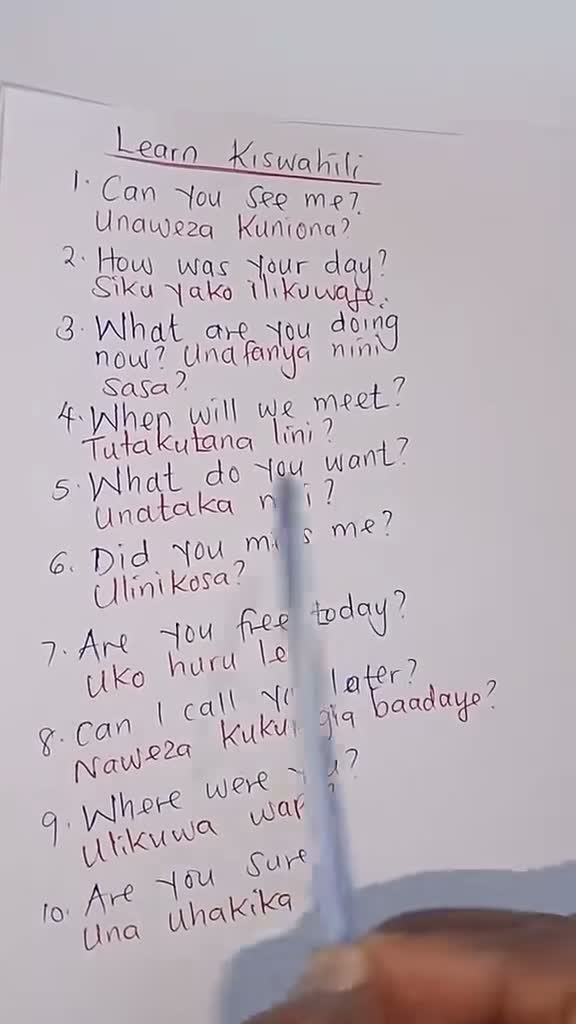 Learn Kiswahili
1. Can you see me?
Unaweza Kuniona?
2. How was your day?
Siku yako ilikuwaje.
3. What are you doing
now? Unafanya nini
sasa?
4. When will we meet?
Tutakutana lini?
5. What do you want?
Unataka ?
6. Did you me?
Ulinikosa?
7. Are you free today?
Uko huru
8. Can I call later?
Naweza baadaye?
9. Where were
Ulikuwa
10. Are you sure
Una uhakika